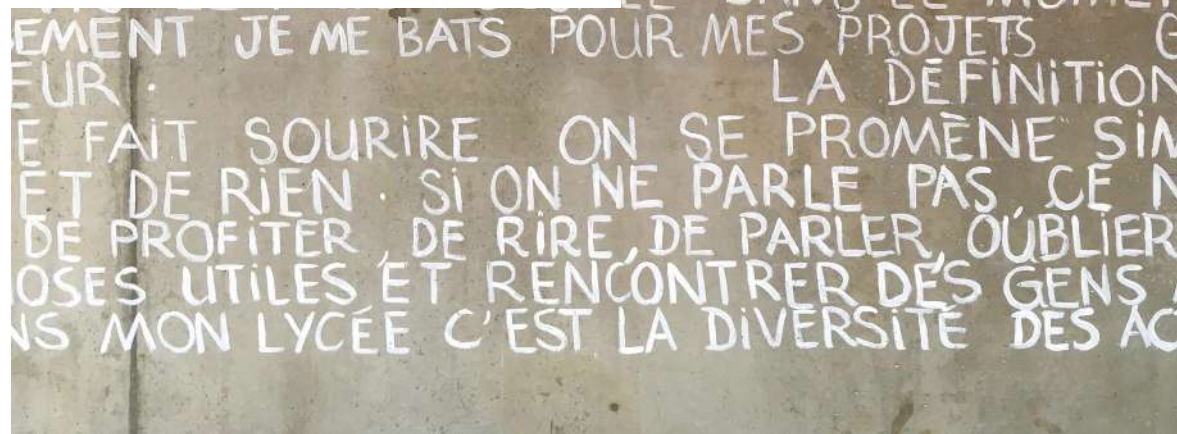 DANS LE MOMENT
EMENT JE ME BATS POUR MES PROJETS G
EUR. LA DÉFINITION
E FAIT SOURIRE ON SE PROMÈNE SIM
ET DE RIEN. SI ON NE PARLE PAS, CE N
DE PROFITER, DE RIRE, DE PARLER, OUBLIER
OSES UTILES ET RENCONTRER DES GENS
NS MON LYCÉE C'EST LA DIVERSITÉ DES AC